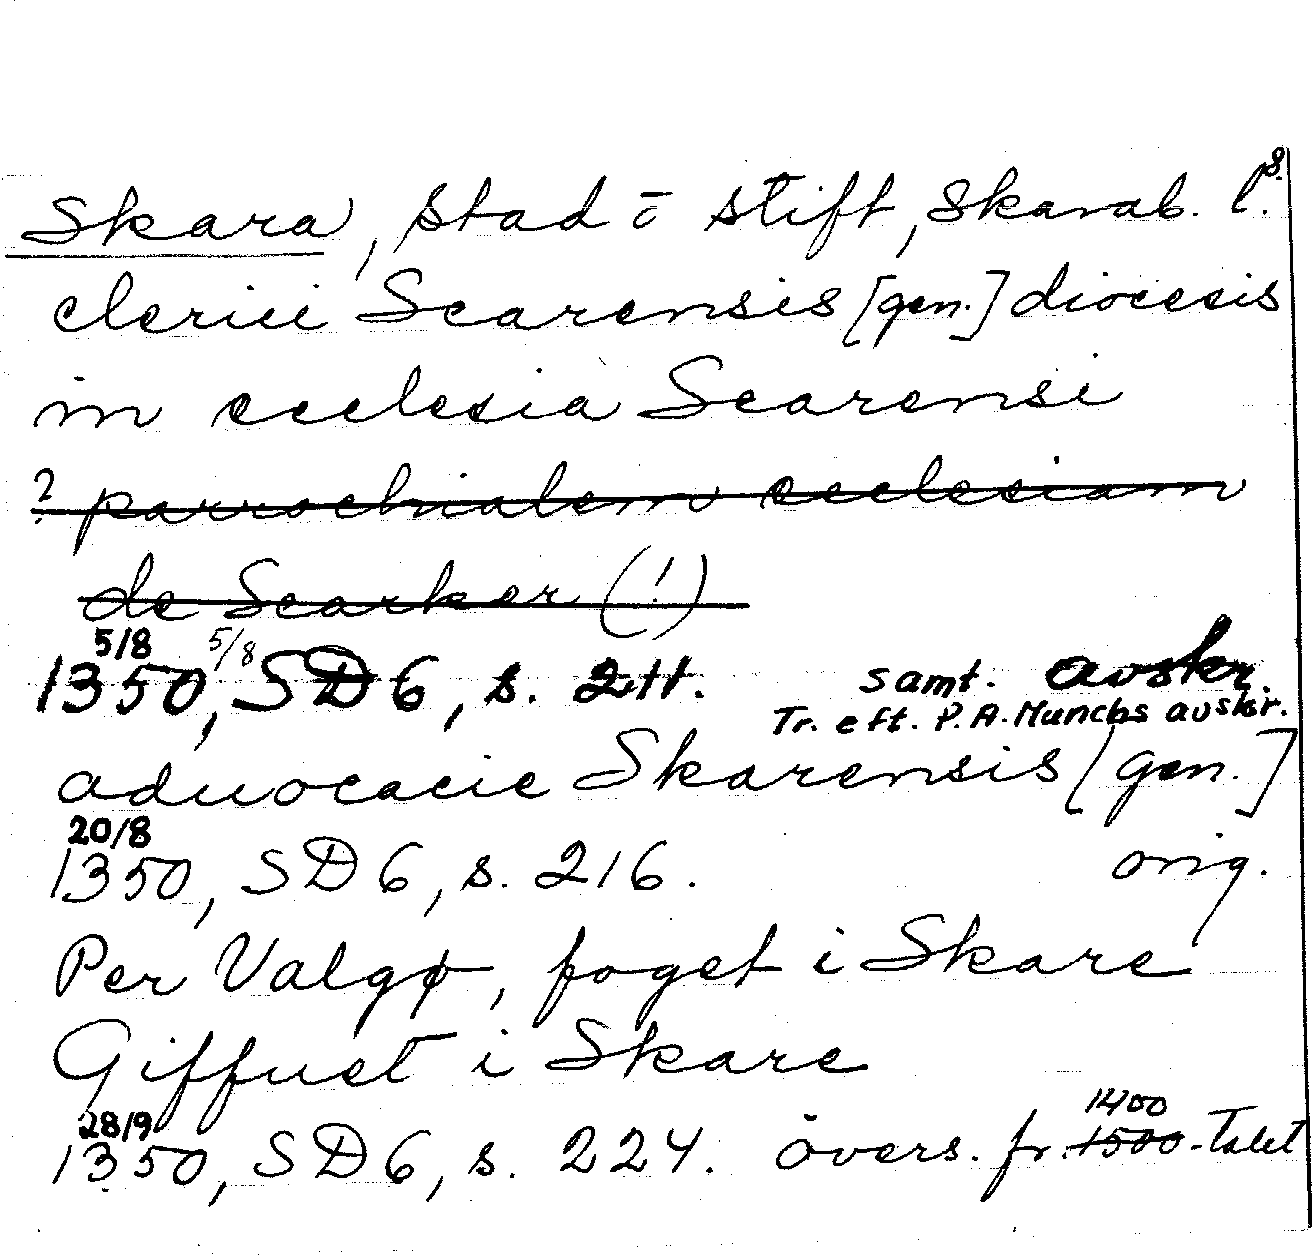 Skara, stad ō stift, Skarab. l. s.
clerici Scarensis [gen.] diocesis
in ecclesia Scarensi
? parrochialem ecclesiam
de Scarker (!)
5/8 5/8
1350, SD 6, s. 211. samt. avskr.
Tr. eft. P. A. Munchs avskr.
aduocacie Skarensis [gen.]
20/8
1350, SD 6, s. 216. orig.
Per Valgø, foget i Skare
Giffuet i Skare
28/9 1400
1350, SD 6, s. 224. övers. fr. 1500-talet